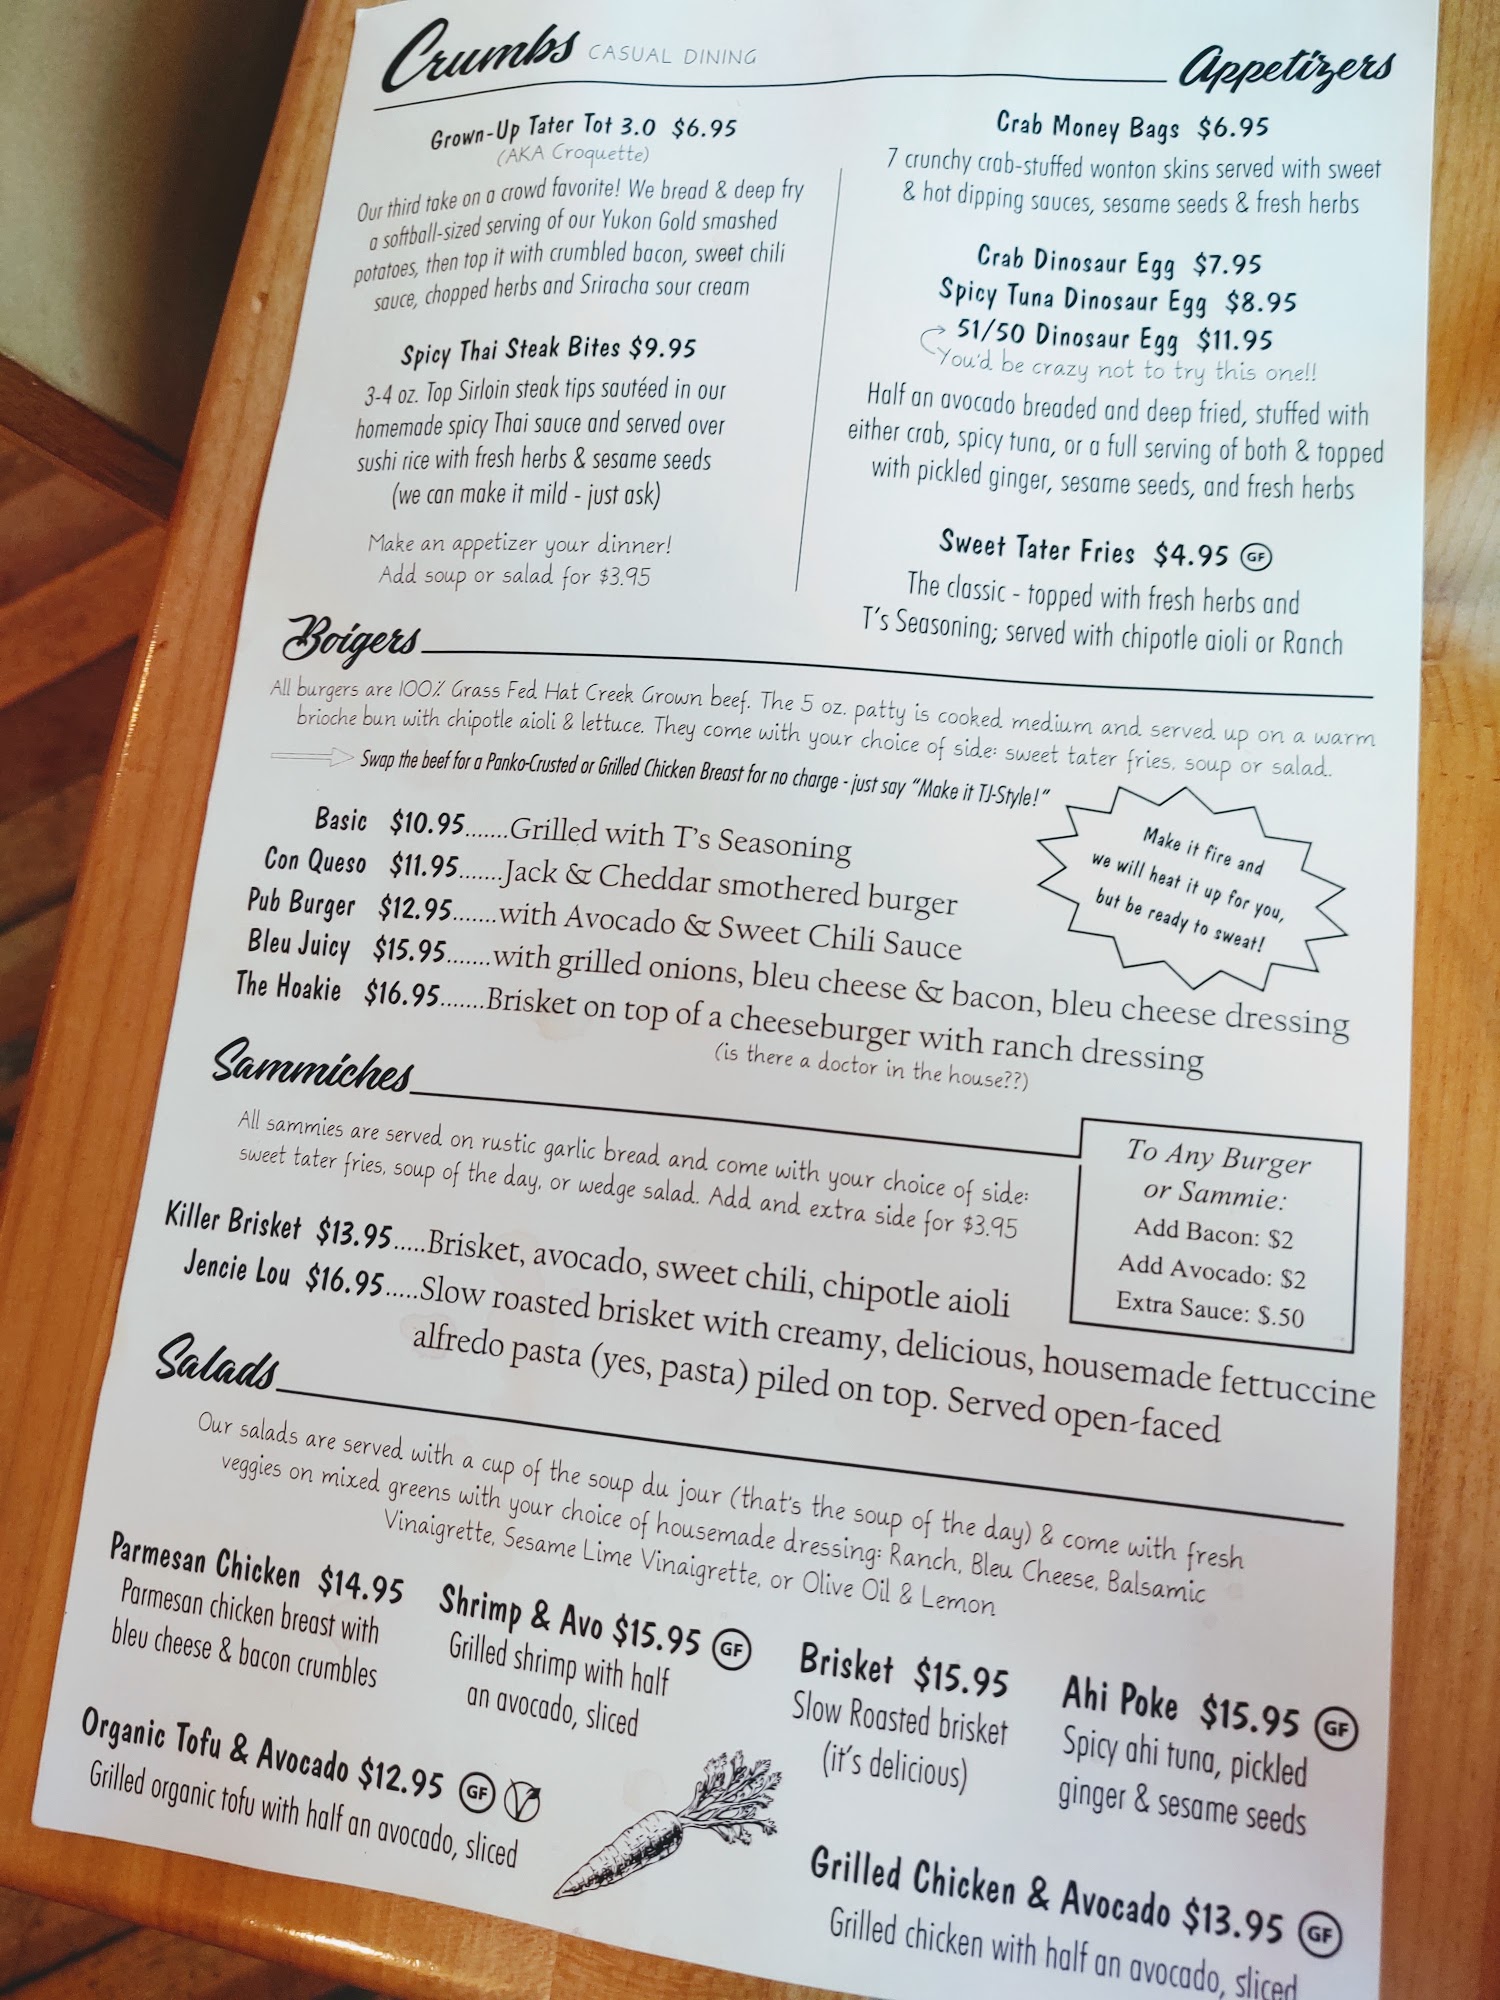 Crumbs CASUAL DINING
Appetizers
Grown-Up Tater Tot 3.0 $6.95
(AKA Croquette)
Our third take on a crowd favorite! We bread & deep fry
a softball-sized serving of our Yukon Gold smashed
potatoes, then top it with crumbled bacon, sweet chili
sauce, chopped herbs and Sriracha sour cream
Spicy Thai Steak Bites $9.95
3-4 oz. Top Sirloin steak tips sautéed in our
homemade spicy Thai sauce and served over
sushi rice with fresh herbs & sesame seeds
(we can make it mild - just ask)
Make an appetizer your dinner!
Add soup or salad for $3.95
Crab Money Bags $6.95
7 crunchy crab-stuffed wonton skins served with sweet
& hot dipping sauces, sesame seeds & fresh herbs
Crab Dinosaur Egg $7.95
Spicy Tuna Dinosaur Egg $8.95
51/50 Dinosaur Egg $11.95
You'd be crazy not to try this one!!
Half an avocado breaded and deep fried, stuffed with
either crab, spicy tuna, or a full serving of both & topped
with pickled ginger, sesame seeds, and fresh herbs
Sweet Tater Fries $4.95 GF
The classic - topped with fresh herbs and
T's Seasoning; served with chipotle aioli or Ranch
Boigers
All burgers are 100% Grass Fed Hat Creek Grown beef. The 5 oz. patty is cooked medium and served up on a warm
brioche bun with chipotle aioli & lettuce. They come with your choice of side: sweet tater fries, soup or salad.
Swap the beef for a Panko-Crusted or Grilled Chicken Breast for no charge - just say "Make it TJ-Style!"
Basic $10.95.......Grilled with T's Seasoning
Con Queso $11.95.......Jack & Cheddar smothered burger
Pub Burger $12.95.......with Avocado & Sweet Chili Sauce
Bleu Juicy $15.95.......with grilled onions, bleu cheese & bacon, bleu cheese dressing
The Hoakie $16.95.......Brisket on top of a cheeseburger with ranch dressing
(is there a doctor in the house??)
Make it fire and
we will heat it up for you,
but be ready to sweat!
Sammiches
All sammies are served on rustic garlic bread and come with your choice of side:
sweet tater fries, soup of the day, or wedge salad. Add and extra side for $3.95
Killer Brisket $13.95.....Brisket, avocado, sweet chili, chipotle aioli
Jencie Lou $16.95.....Slow roasted brisket with creamy, delicious, housemade fettuccine
alfredo pasta (yes, pasta) piled on top. Served open-faced
To Any Burger
or Sammie:
Add Bacon: $2
Add Avocado: $2
Extra Sauce: $.50
Salads
Our salads are served with a cup of the soup du jour (that's the soup of the day) & come with fresh
veggies on mixed greens with your choice of housemade dressing: Ranch, Bleu Cheese, Balsamic
Vinaigrette, Sesame Lime Vinaigrette, or Olive Oil & Lemon
Parmesan Chicken $14.95
Parmesan chicken breast with
bleu cheese & bacon crumbles
Shrimp & Avo $15.95 GF
Grilled shrimp with half
an avocado, sliced
Brisket $15.95
Slow Roasted brisket
(it's delicious)
Ahi Poke $15.95 GF
Spicy ahi tuna, pickled
ginger & sesame seeds
Organic Tofu & Avocado $12.95 GF V
Grilled organic tofu with half an avocado, sliced
Grilled Chicken & Avocado $13.95 GF
Grilled chicken with half an avocado, sliced